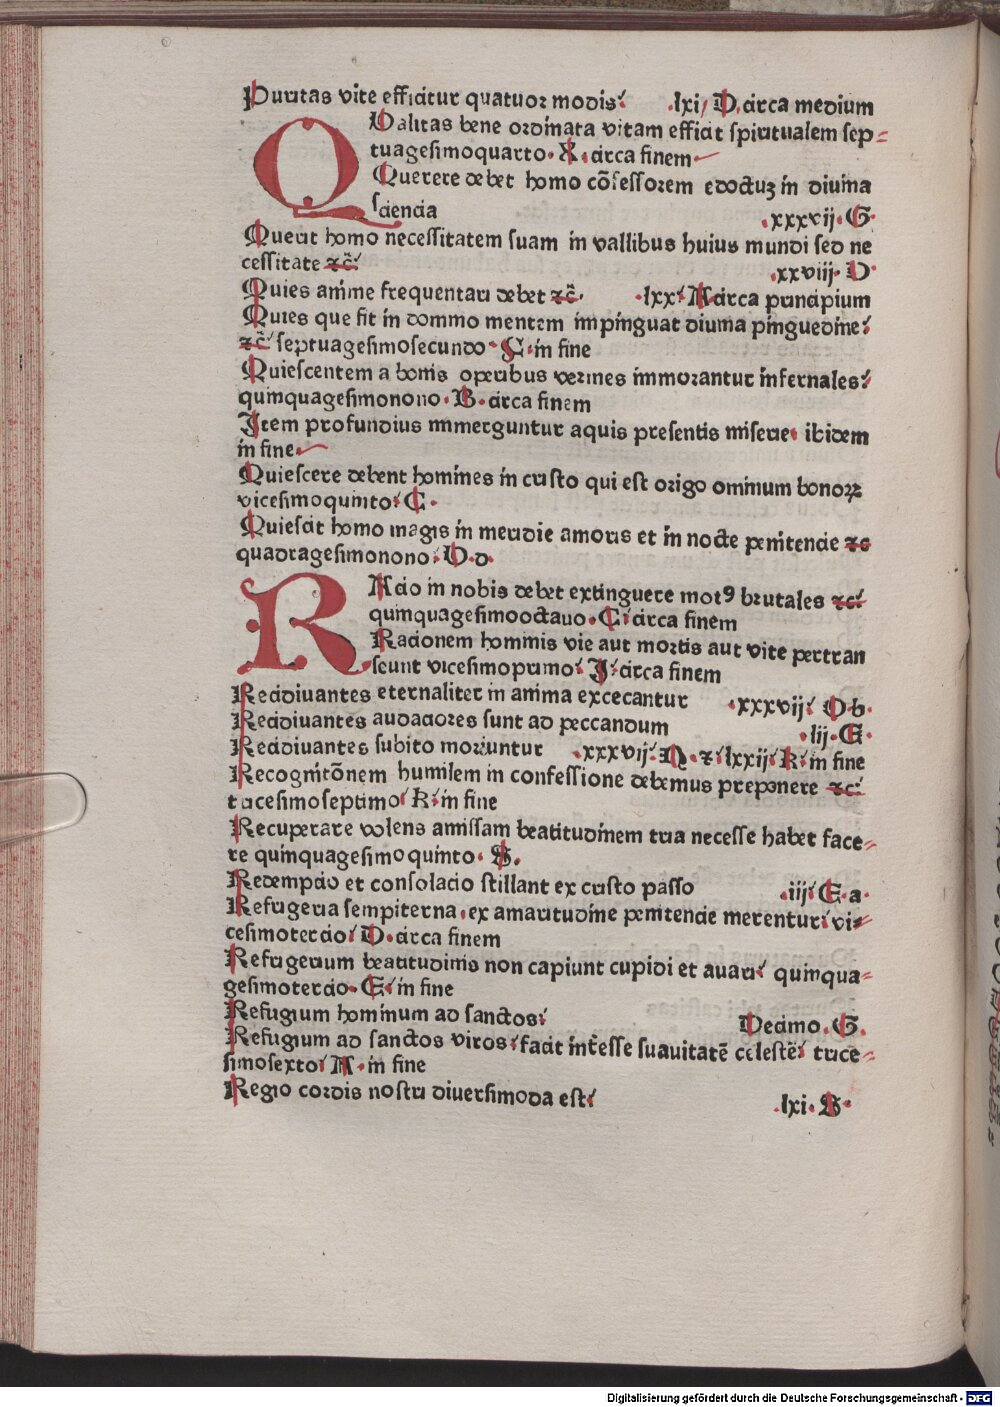 Puritas vite efficitur quatuor modis: .lxi. D. circa medium
QUalitas bene ordinata vitam efficit spiritualem sep=
tuagesimoquarto. X. circa finem
Querere debet homo cōfessorem edoctuʒ in diuina
sciencia .xxxvij. G.
Querit homo necessitatem suam in vallibus huius mundi sed ne
cessitate ⁊c̄. .xxviij. D.
Quies anime frequentari debet ⁊c̄. .lxx. A circa principium
Quies que fit in domino mentem impinguat diuina pinguedine:
⁊c̄. septuagesimosecundo. C. in fine
Quiescentem a bonis operibus vermes immorantur infernales:
quinquagesimonono. B. circa finem
Item profundius immerguntur aquis presentis miserie. ibidem
in fine.
Quiescere debent homines in cristo qui est origo omnium bonoꝝ
vicesimoquinto: C.
Quiescit homo magis in meridie amoris et in nocte penitencie ⁊c
quadragesimonono: D. d.
RAcio in nobis debet extinguere motꝰ brutales ⁊c̄.
quinquagesimooctauo. C. circa finem
Racionem hominis vie aut mortis aut vite pertran
seunt vicesimoprimo: I. circa finem
Recidiuantes eternaliter in anima excecantur .xxxvij. O. b.
Recidiuantes audaciores sunt ad peccandum .lij. E.
Recidiuantes subito moriuntur .xxxvij. N. ⁊. lxxij. K. in fine
Recognitōnem humilem in confessione debemus preponere ⁊c̄.
tricesimoseptimo: K. in fine
Recuperare volens amissam beatitudinem tria necesse habet face=
re quinquagesimoquinto. B.
Redempcio et consolacio stillant ex cristo passo .iij. E. a.
Refugeria sempiterna. ex amaritudine penitencie merentur: vi=
cesimotercio: D. circa finem
Refrigerium beatitudinis non capiunt cupidi et auari: quinqua=
gesimotercio. E. in fine
Refugium hominum ad sanctos: Decimo. G.
Refugium ad sanctos viros: facit int̄esse suauitatē celestē: trice=
simosexto: A. in fine
Regio cordis nostri diuersimoda est: .lxi. B.
Digitalisierung gefördert durch die Deutsche Forschungsgemeinschaft - DFG